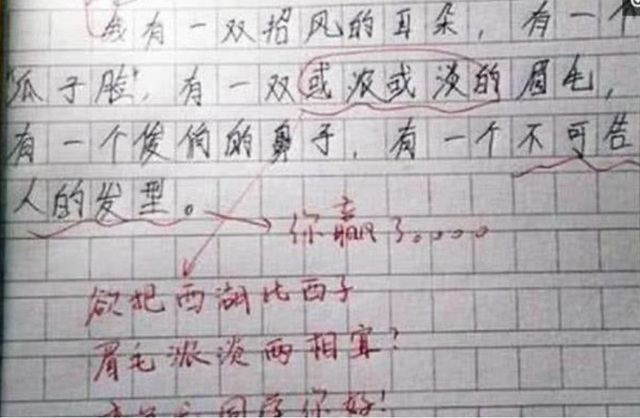 我有一双招风的耳朵，有一个
"瓜子脸"，有一双或浓或淡的眉毛，
有一个俊俏的鼻子，有一个不可告
人的发型。
你赢了。。。。
欲把西湖比西子
眉毛浓淡两相宜？
同学你好！